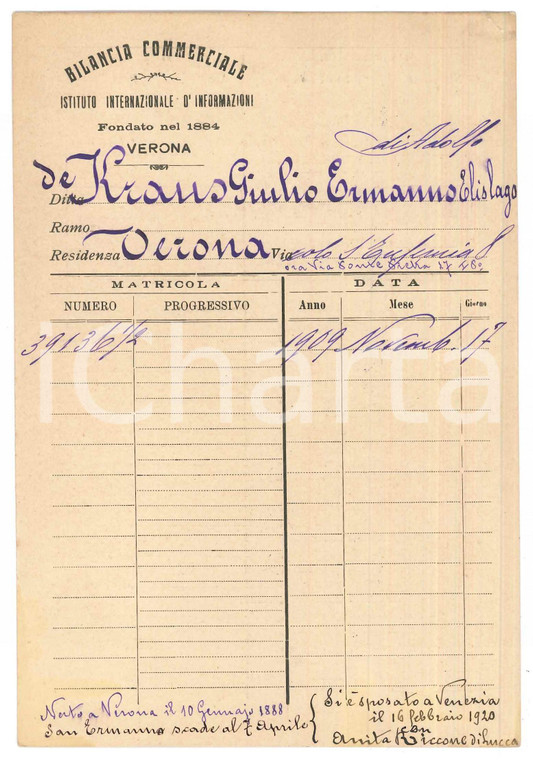 BILANCIA COMMERCIALE
ISTITUTO INTERNAZIONALE D'INFORMAZIONI
Fondato nel 1884
VERONA
di Adolfo
de Kraus Giulio Ermanno
Ditta
Ramo
Residenza Verona Via S. Eufemia 8
ora Via Ponte Pietra 17
MATRICOLA DATA
NUMERO PROGRESSIVO Anno Mese Giorno
39136 1/2 1909 Novemb. 17
iCharta
Nato a Verona il 10 Gennajo 1888
San Ermanno scade al 7 Aprile
Si è sposato a Venezia
il 16 febbraio 1920
con
Anita di Lucca